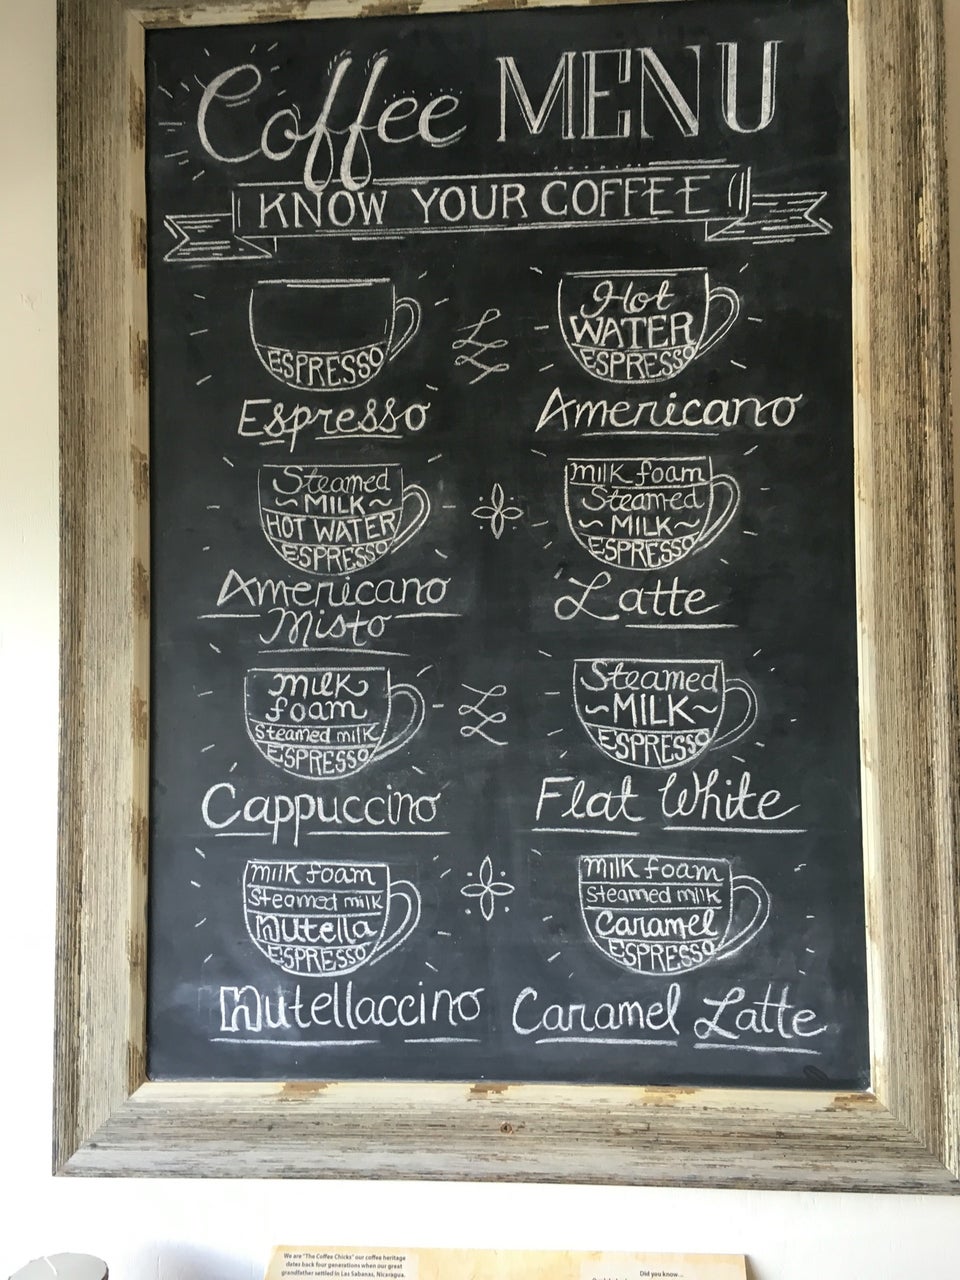 Coffee MENU
KNOW YOUR COFFEE
ESPRESSO
Espresso
Hot
WATER
ESPRESSO
Americano
Steamed
~MILK~
HOT WATER
ESPRESSO
Americano
Misto
milk foam
Steamed
~MILK~
ESPRESSO
Latte
milk
foam
steamed milk
ESPRESSO
Cappuccino
Steamed
~MILK~
ESPRESSO
Flat White
milk foam
Steamed milk
nutella
ESPRESSO
Nutellaccino
milk foam
steamed milk
Caramel
ESPRESSO
Caramel Latte
We are "The Coffee Chicks" our coffee heritage
dates back four generations when our great
grandfather settled in Las Sabanas, Nicaragua.
Did you know...